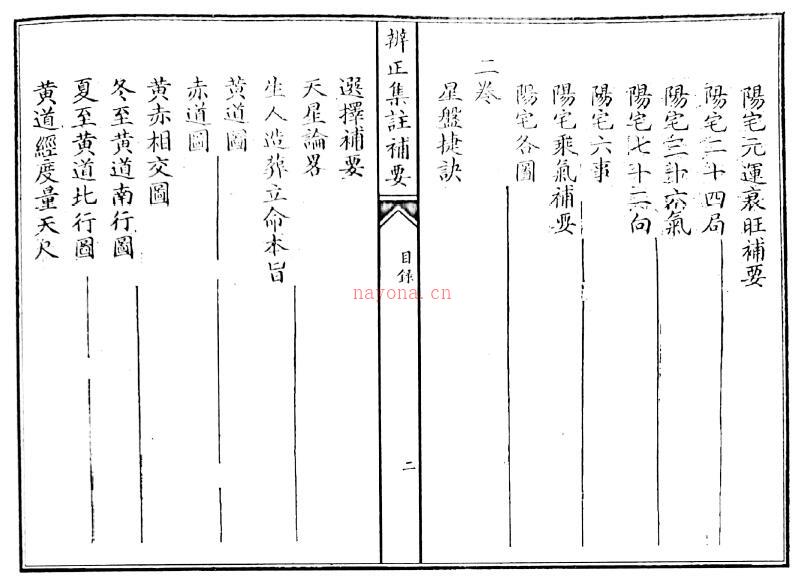 陽宅元運衰旺補要
陽宅二十四局
陽宅三十六氣
陽宅七十二向
陽宅六事
陽宅乘氣補要
陽宅各圖
二卷
星盤捷訣
辨正集註補要
目錄
二
選擇補要
天星論畧
生人造葬立命本旨
黃道圖
赤道圖
黃赤相交圖
冬至黃道南行圖
夏至黃道北行圖
黃道經度量天尺
nayona.cn